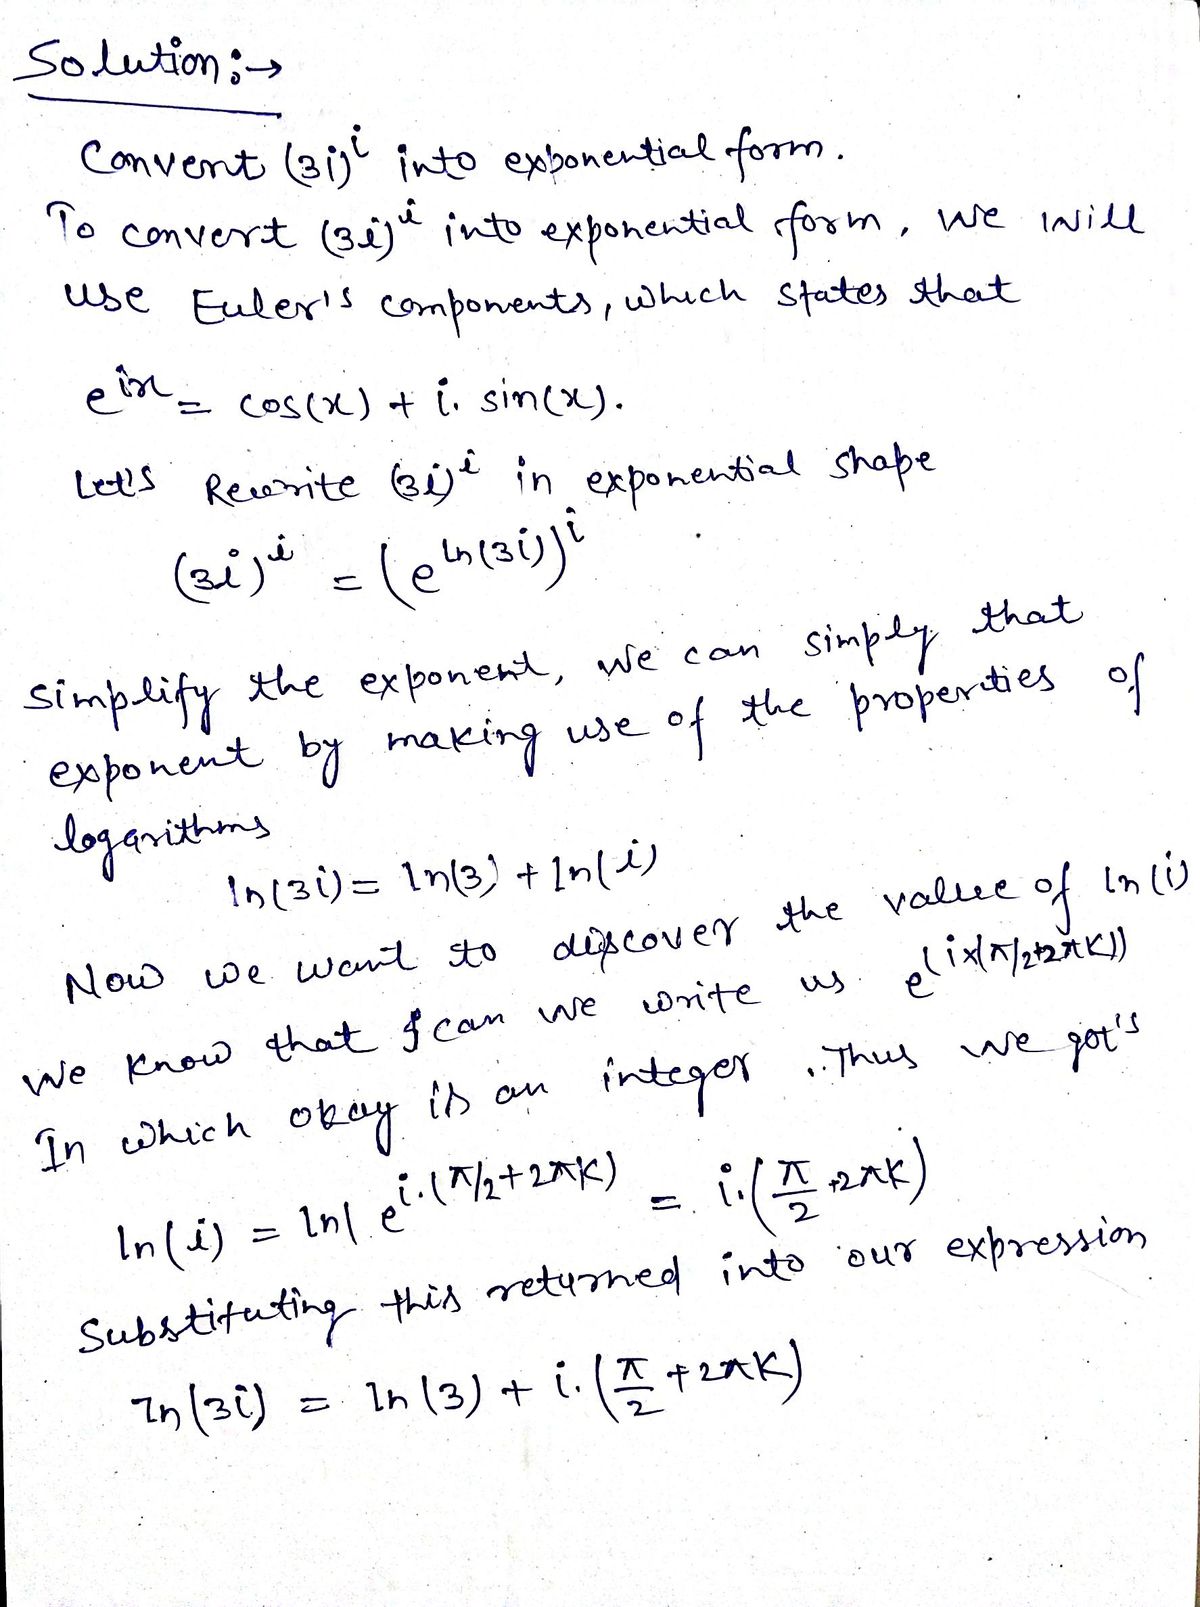 Solution:→
Convent (3i)^i into exponential form.
To convert (3i)^i into exponential form, we will
use Euler's components, which states that
e^ix = cos(x) + i. sin(x).
Let's Rewrite (3i)^i in exponential shape
(3i)^i = (e^ln(3i))^i
simplify the exponent, we can simply that
exponent by making use of the properties of
logarithms
ln(3i) = ln(3) + ln(i)
Now we want to discover the value of ln(i)
we know that I can we write us e^(ix(π/2+2πK))
In which okay is an integer. Thus we got's
ln(i) = ln(e^i.(π/2+2πK) = i.(π/2+2πK)
Substituting this returned into our expression
ln(3i) = ln(3) + i.(π/2 + 2πK)